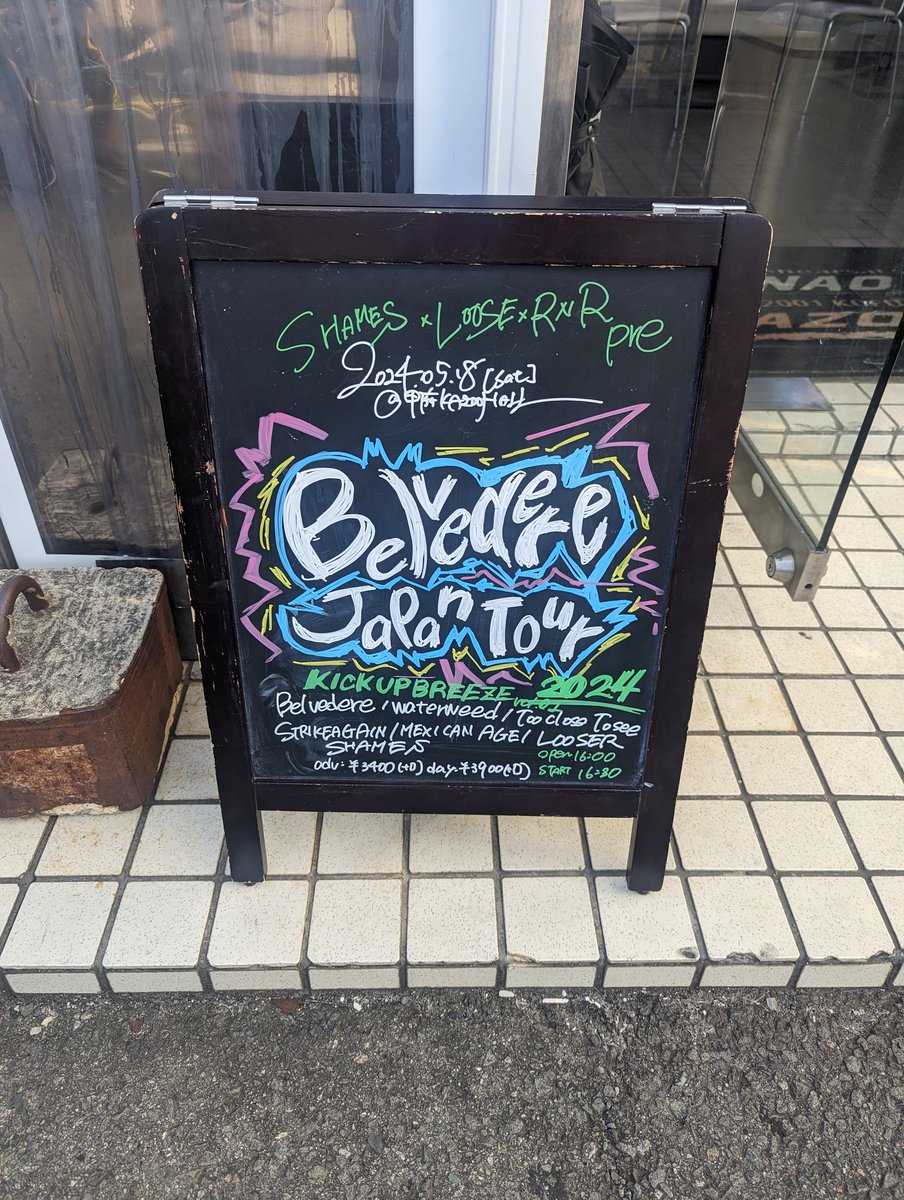 SHAMES × LOOSE × RNR pre
2024.05.18 [Sat]
Belvedere
Japan Tour
KICK UP BREEZE 2024
Belvedere / waterweed / Too Close To see
STRIKE AGAIN / MEXICAN AGE / LOOSER
SHAMES
OPEN 16:00
adv: ¥3400(+D) day: ¥3900(+D) START 16:30
DAN